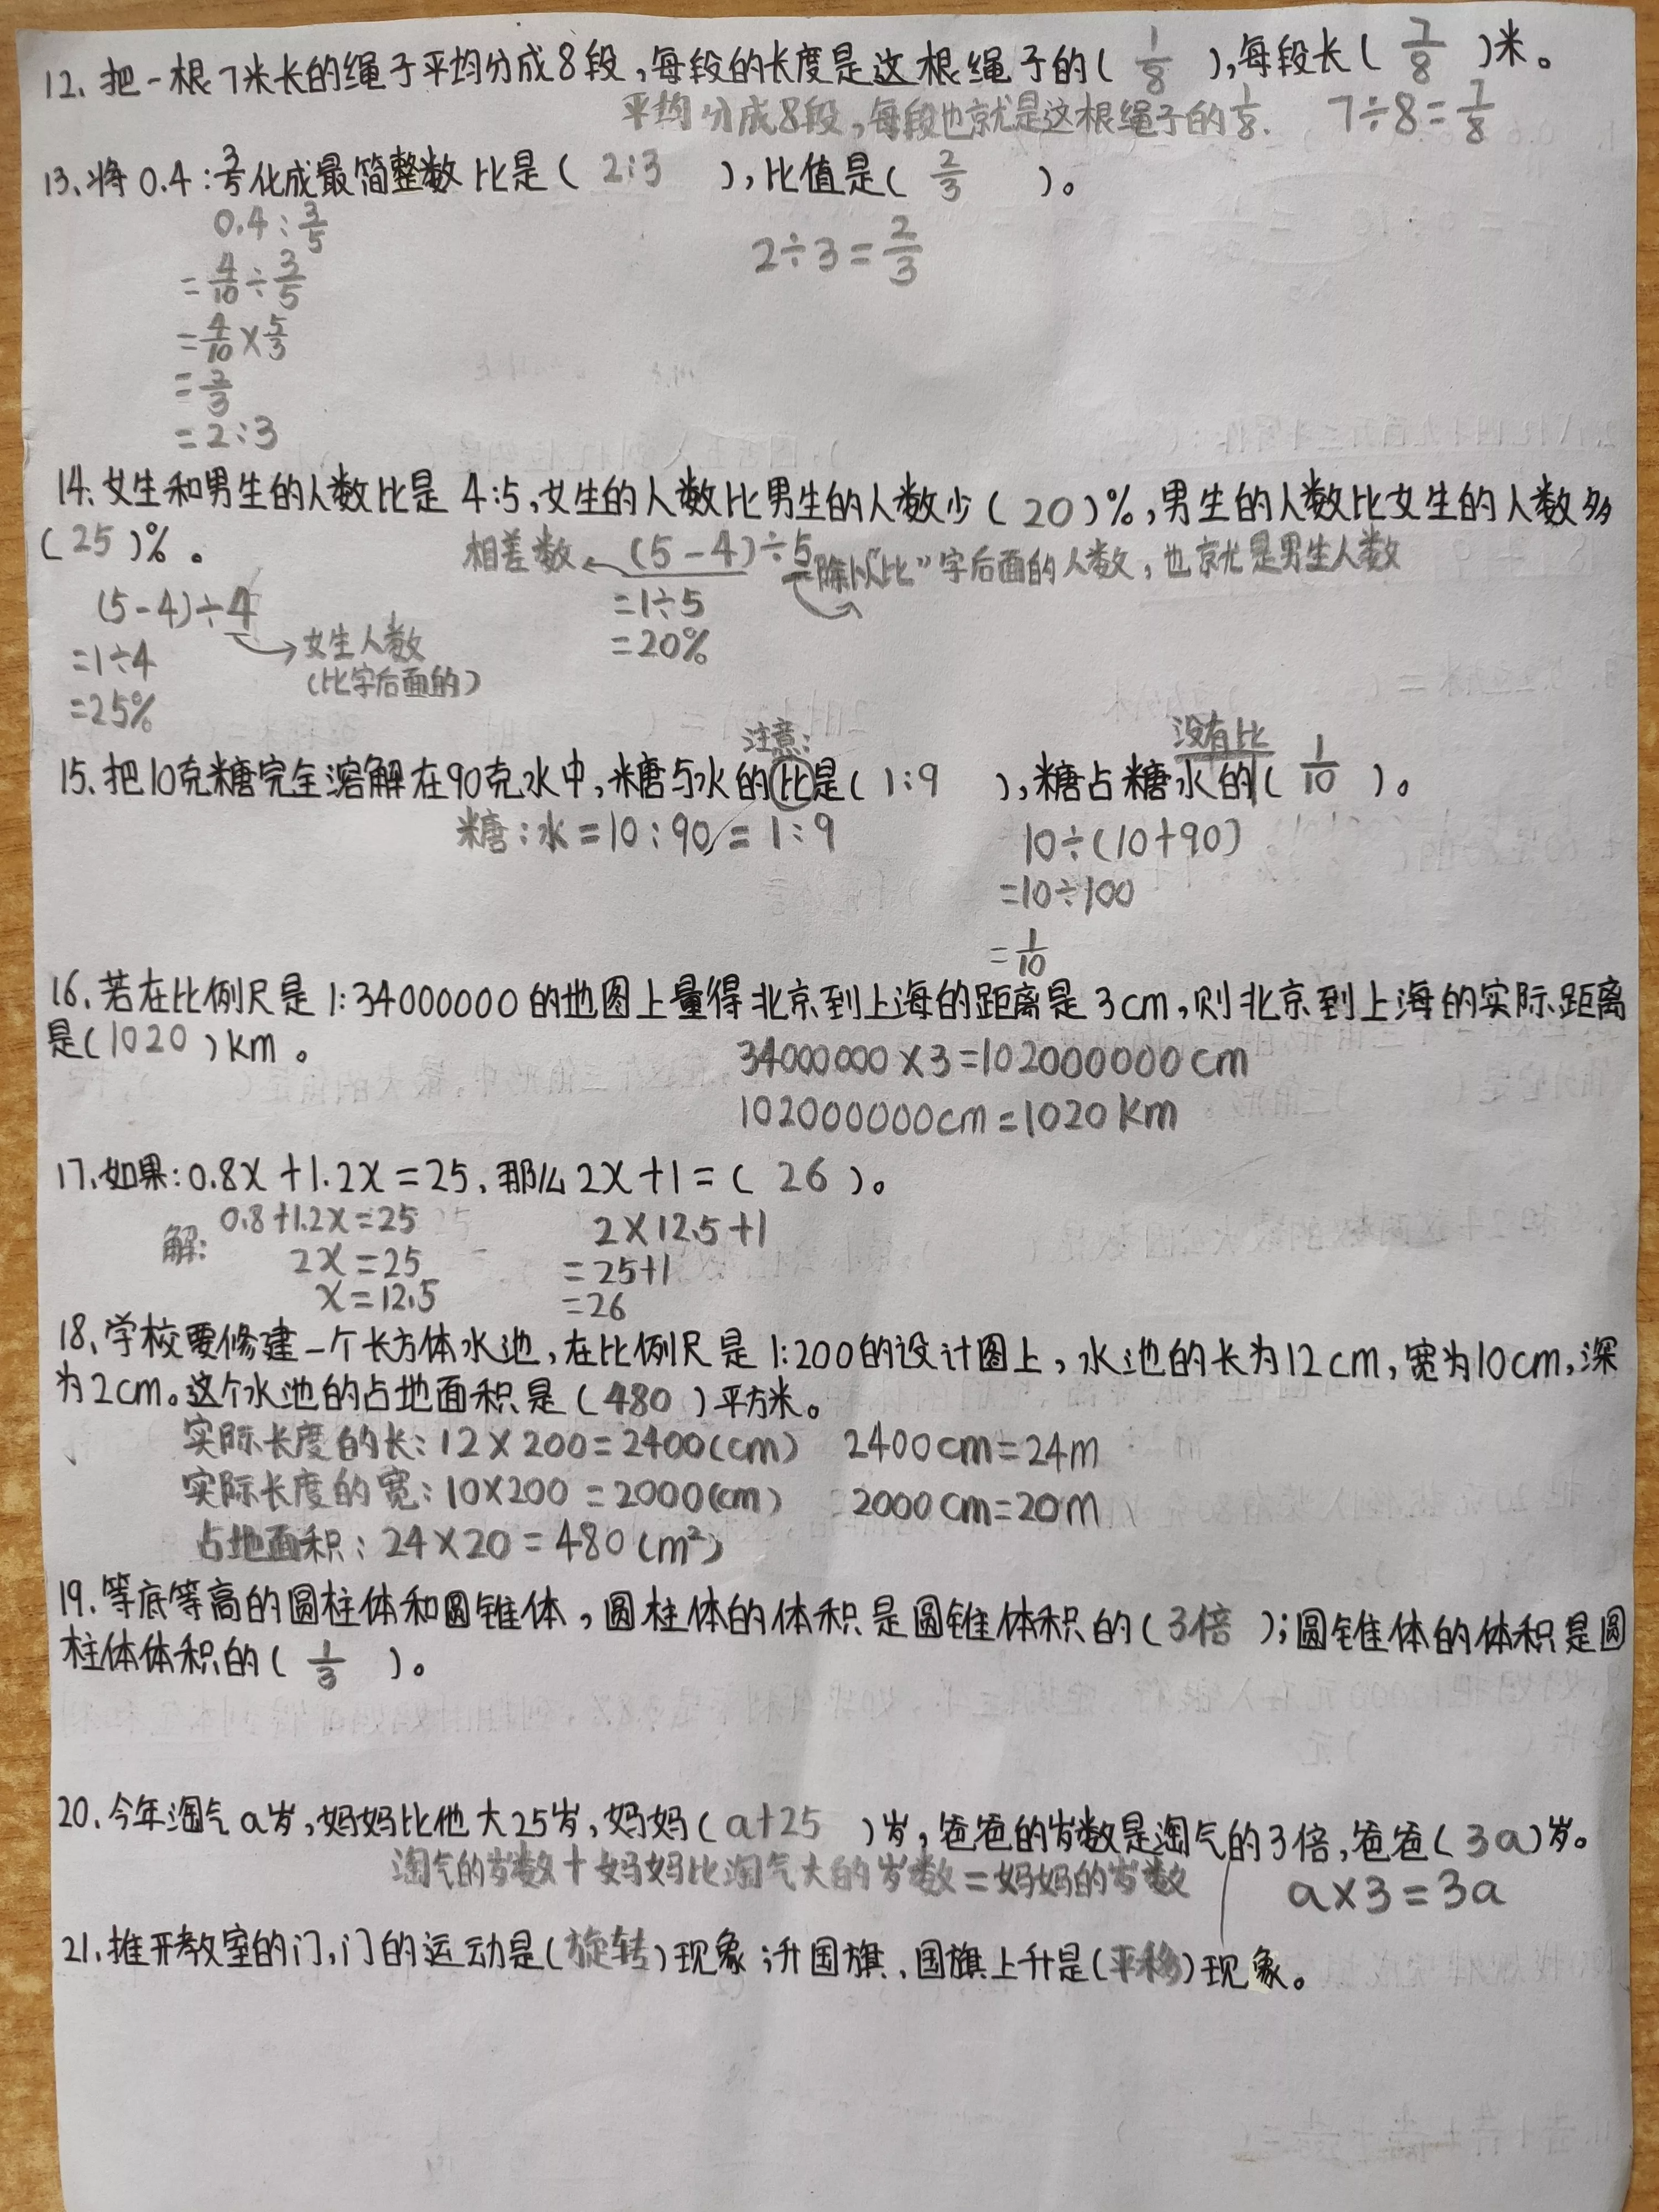 12、把一根7米长的绳子平均分成8段,每段的长度是这根绳子的( 1/8 ),每段长( 7/8 )米。
平均分成8段,每段也就是这根绳子的1/8. 7÷8=7/8
13、将0.4:3/5化成最简整数比是( 2:3 ),比值是( 2/3 )。
0.4:3/5
=4/10÷3/5
=4/10×5/3
=2/3
=2:3
2÷3=2/3
14、女生和男生的人数比是 4:5,女生的人数比男生的人数少( 20 )%,男生的人数比女生的人数多
( 25 )%。
相差数←(5-4)÷5 除以“比”字后面的人数,也就是男生人数
=1÷5
=20%
(5-4)÷4
→女生人数
(比字后面的)
=1÷4
=25%
注意:
没有比
15、把10克糖完全溶解在90克水中,糖与水的比是( 1:9 ),糖占糖水的( 1/10 )。
糖:水=10:90=1:9
10÷(10+90)
=10÷100
=1/10
16、若在比例尺是1:34000000的地图上量得北京到上海的距离是3cm,则北京到上海的实际距离
是(1020)km。
34000000×3=102000000cm
102000000cm=1020Km
17、如果:0.8x+1.2x=25,那么2x+1=( 26 )。
解: 0.8+1.2x=25
2x=25
x=12.5
2×12.5+1
=25+1
=26
18、学校要修建一个长方体水池,在比例尺是1:200的设计图上,水池的长为12cm,宽为10cm,深
为2cm。这个水池的占地面积是(480)平方米。
实际长度的长:12×200=2400(cm) 2400cm=24m
实际长度的宽:10×200=2000(cm) 2000cm=20m
占地面积:24×20=480(m²)
19、等底等高的圆柱体和圆锥体,圆柱体的体积是圆锥体积的(3倍);圆锥体的体积是圆
柱体体积的( 1/3 )。
20、今年淘气a岁,妈妈比他大25岁,妈妈( a+25 )岁,爸爸的岁数是淘气的3倍,爸爸( 3a )岁。
淘气的岁数+妈妈比淘气大的岁数=妈妈的岁数 a×3=3a
21、推开教室的门,门的运动是(旋转)现象;升国旗,国旗上升是(平移)现象。